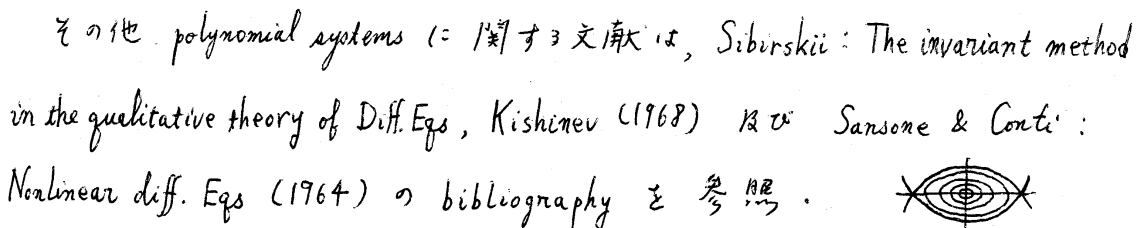 その他 polynomial systems に関する文献は, Sibirskii : The invariant method
in the qualitative theory of Diff. Eqs, Kishinev (1968) 及び Sansone & Conti :
Nonlinear diff. Eqs (1964) の bibliography を参照.